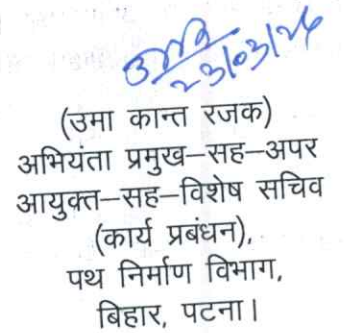 23/03/26
(उमा कान्त रजक)
अभियंता प्रमुख–सह–अपर
आयुक्त–सह–विशेष सचिव
(कार्य प्रबंधन),
पथ निर्माण विभाग,
बिहार, पटना।